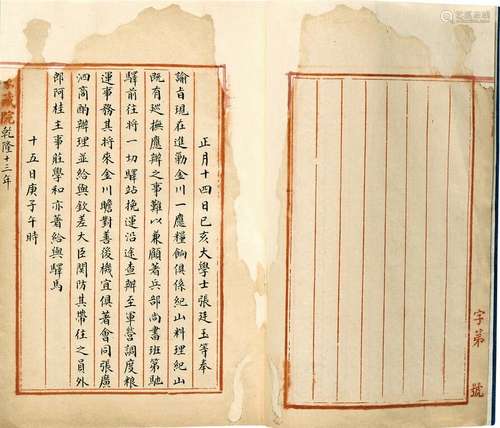 字第 號
正月十四日己亥大學士張廷玉等奉
諭旨現在進勦金川一應糧餉俱係紀山料理紀山
既有巡撫應辦之事難以兼顧著兵部尚書班第馳
驛前往將一切驛站挽運沿途查辦至軍營調度糧
運事務其將來金川瞻對善後機宜俱著會同張廣
泗商酌辦理並給與欽差大臣關防其帶往之員外
郎阿桂主事莊學和亦著給與驛馬
十五日庚子午時
藏院乾隆十三年